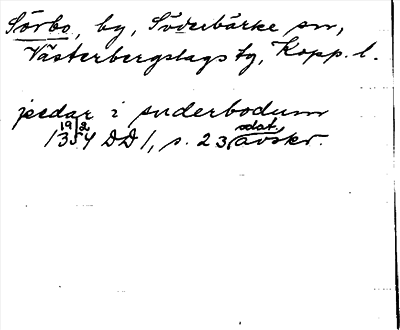 Sörbo, by, Söderbärke sn,
Västerbergslags tg, Kopp. l.
pedar i suderbodum
19/2 odat.
1354 DD 1, s. 23, avskr.